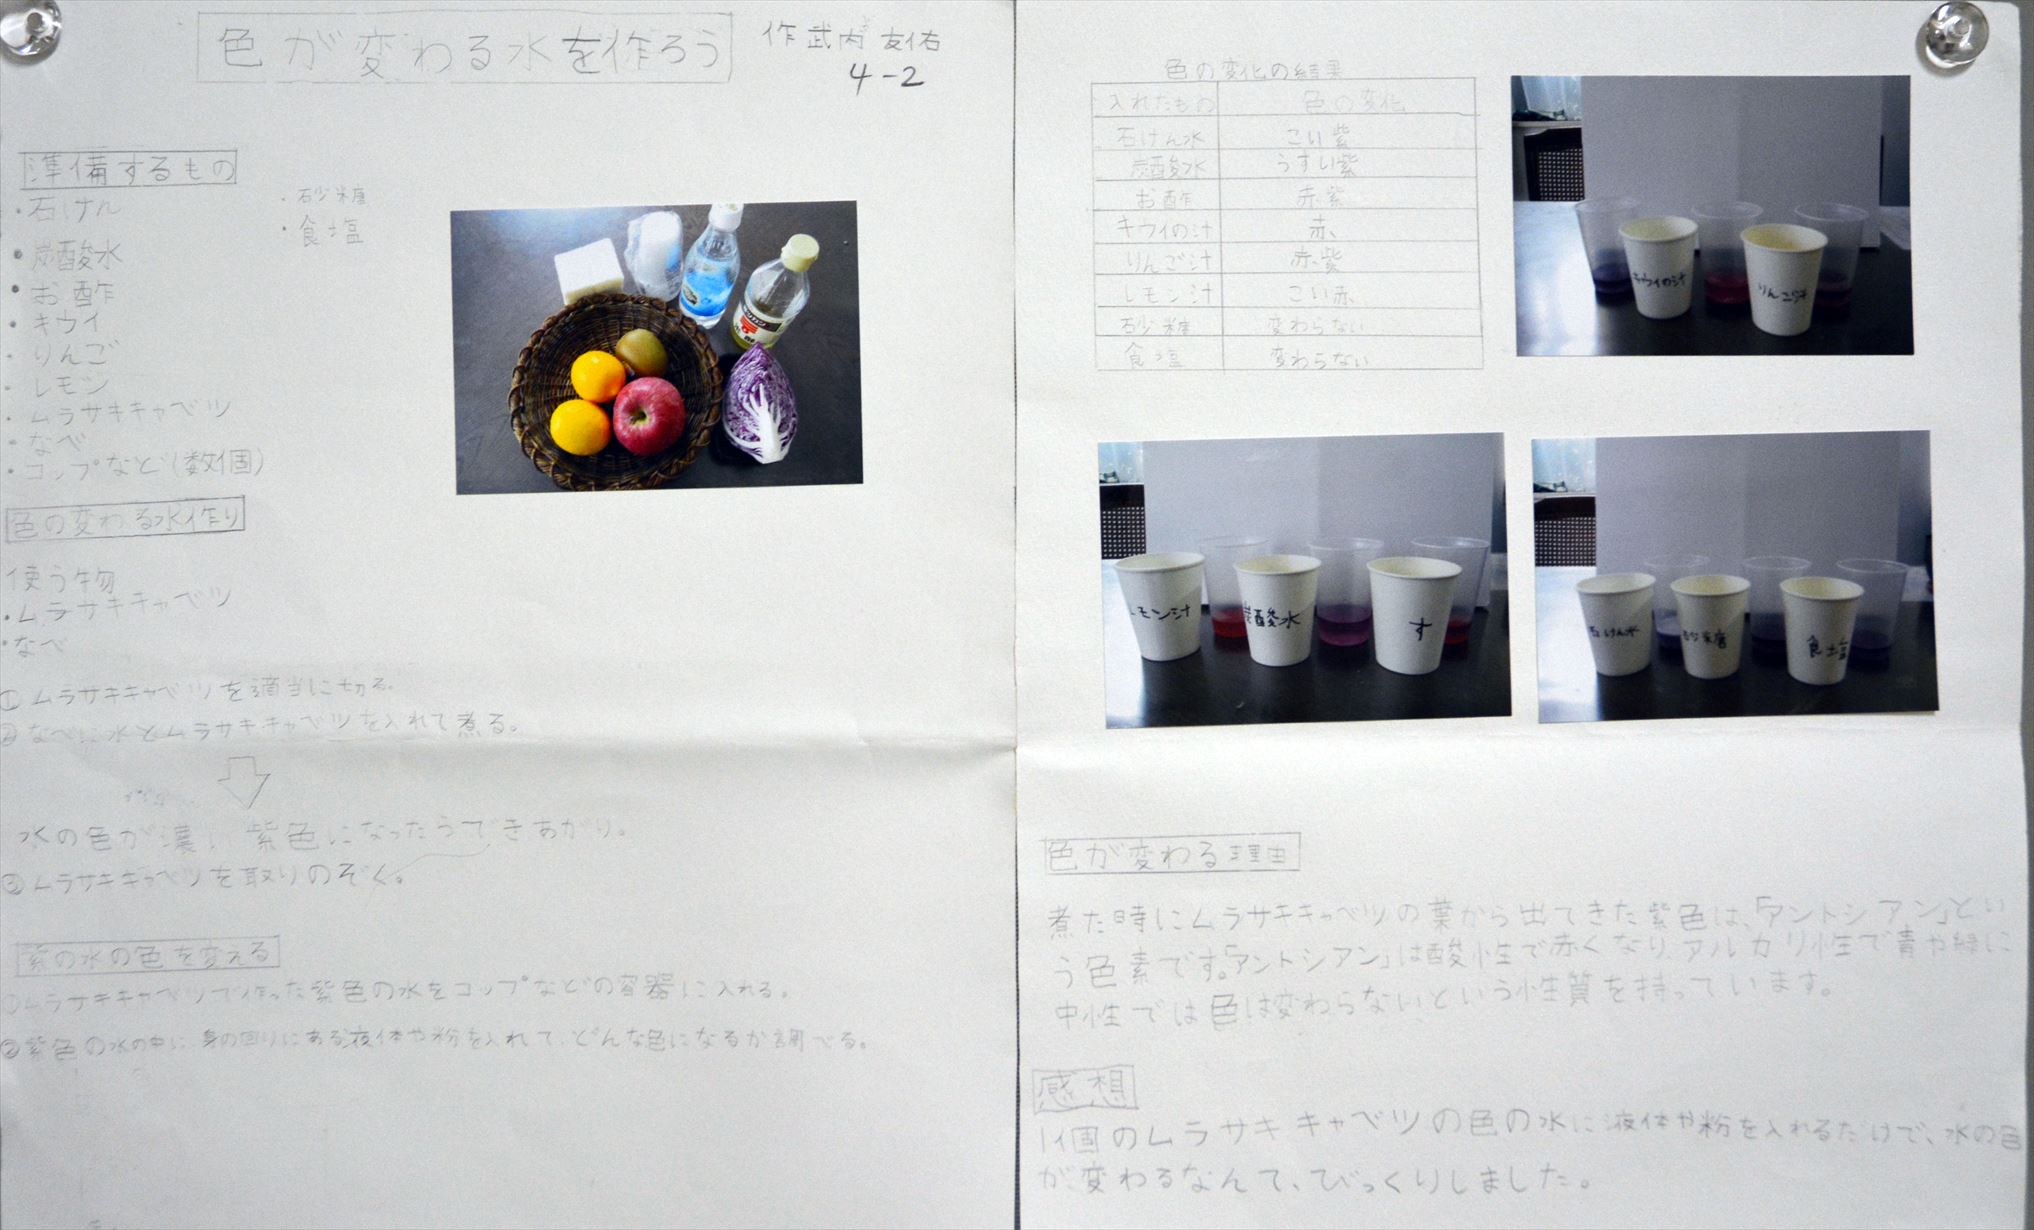 色が変わる水を作ろう
作 武内 友佑
4-2
準備するもの
・石けん
・炭酸水
・お酢
・キウイ
・りんご
・レモン
・ムラサキキャベツ
・なべ
・コップなど(数個)
・砂糖
・食塩
色の変わる水作り
使う物
・ムラサキキャベツ
・なべ
①ムラサキキャベツを適当に切る。
②なべに水とムラサキキャベツを入れて煮る。
水の色が濃い紫色になったらできあがり。
③ムラサキキャベツを取りのぞく。
紫の水の色を変える
①ムラサキキャベツで作った紫色の水をコップなどの容器に入れる。
②紫色の水の中に身の回りにある液体や粉を入れて、どんな色になるか調べる。
色の変化の結果
入れたもの 色の変化
石けん水 こい紫
炭酸水 うすい紫
お酢 赤紫
キウイの汁 赤
りんご汁 赤紫
レモン汁 こい赤
砂糖 変わらない
食塩 変わらない
キウイの汁
りんご汁
レモン汁
炭酸水
す
石けん水
砂糖
食塩
色が変わる理由
煮た時にムラサキキャベツの葉から出てきた紫色は、「アントシアン」とい
う色素です。「アントシアン」は酸性で赤くなり、アルカリ性で青や緑に
中性では色は変わらないという性質を持っています。
感想
1個のムラサキキャベツの色の水に液体や粉を入れるだけで、水の色
が変わるなんて、びっくりしました。